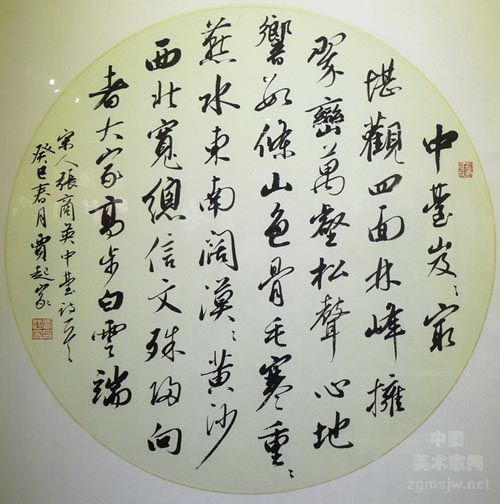 中臺岌〻最
堪觀四面林峰擁
翠巒萬壑松聲心地
響數條山色骨毛寒重〻
燕水東南闊漠〻黄沙
西北寬總信文殊歸向
者大家高步白雲端
宋人張商英中臺诗一首
癸巳春月賈起家
中國
美术家网
zgmsjw.net